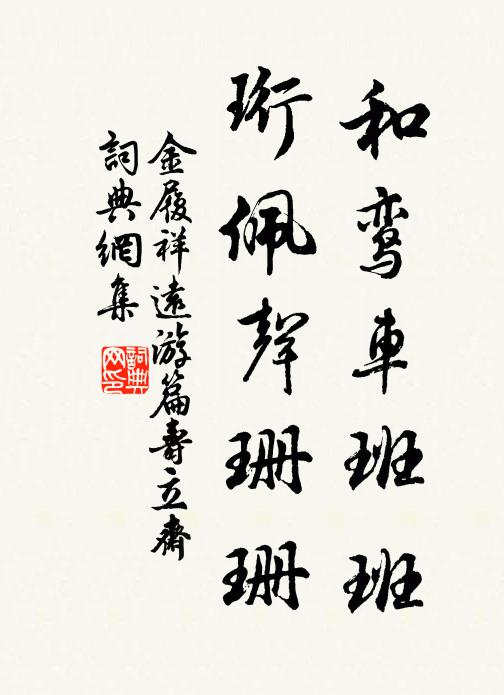 和鸾車班班
珩佩聲珊珊
金履祥遠游篇壽立齋
詞典網集
詞典网印